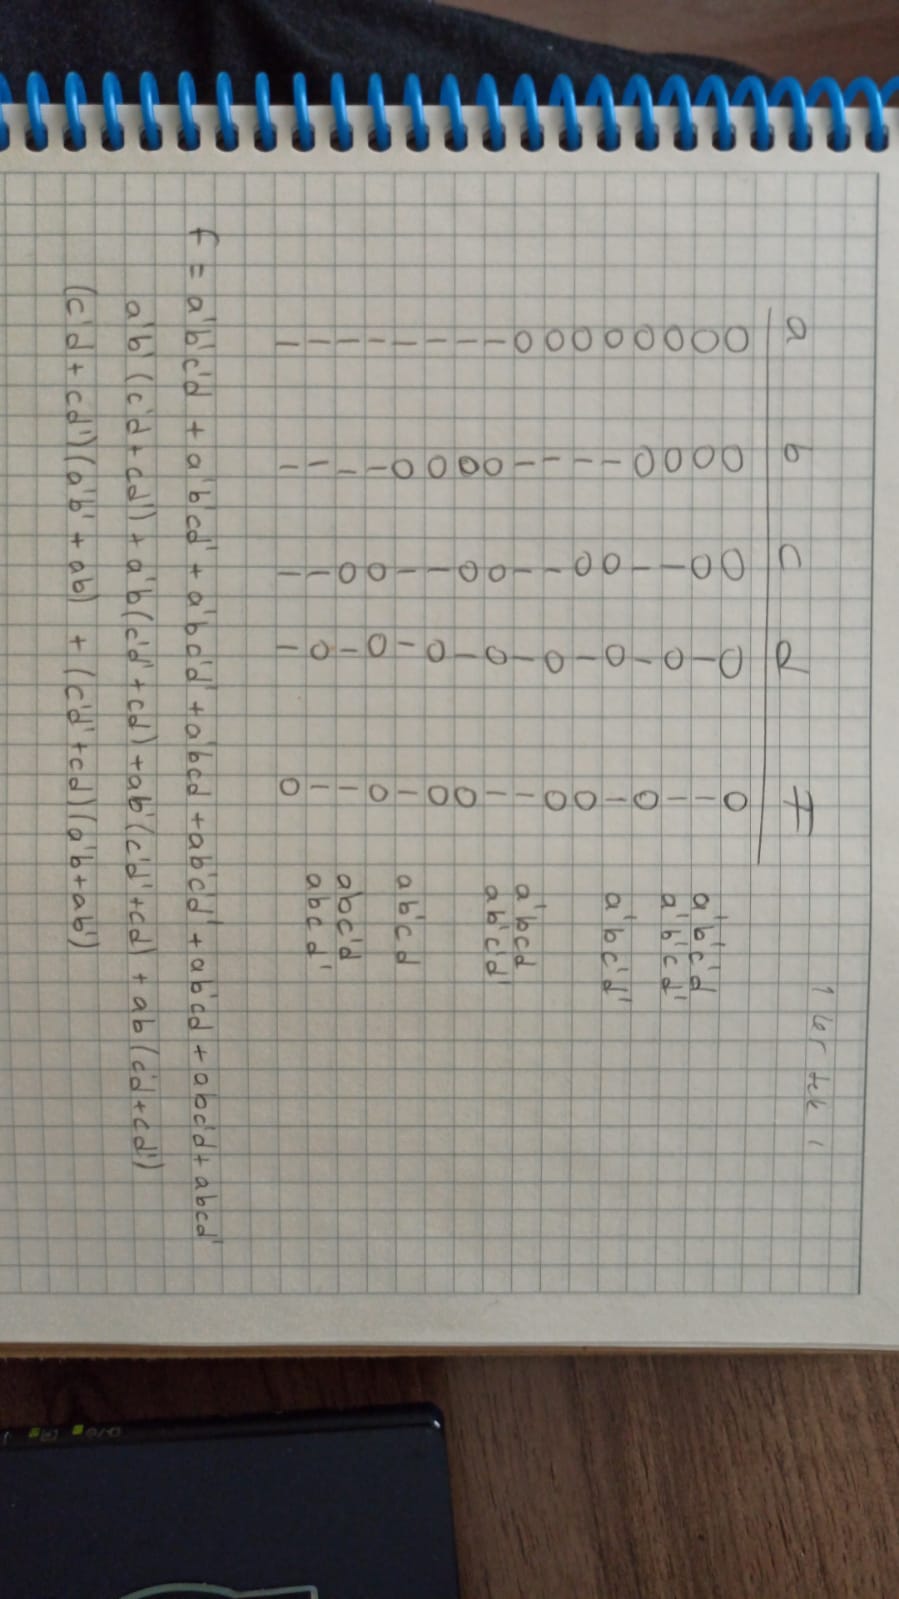 1 ler tek 1
a b c d F
0 0 0 0 0
0 0 0 1 1 a'b'c'd
0 0 1 0 1 a'b'cd'
0 0 1 1 0
0 1 0 0 1 a'bc'd'
0 1 0 1 0
0 1 1 0 0
0 1 1 1 1 a'bcd
1 0 0 0 1 ab'c'd'
1 0 0 1 0
1 0 1 0 0
1 0 1 1 1 ab'cd
1 1 0 0 0
1 1 0 1 1 abc'd
1 1 1 0 1 abcd'
1 1 1 1 0
f = a'b'c'd + a'b'cd' + a'bc'd' + a'bcd + ab'c'd' + ab'cd + abc'd + abcd'
a'b'(c'd + cd') + a'b(c'd' + cd) + ab'(c'd' + cd) + ab(c'd + cd')
(c'd + cd')(a'b' + ab) + (c'd' + cd)(a'b + ab')